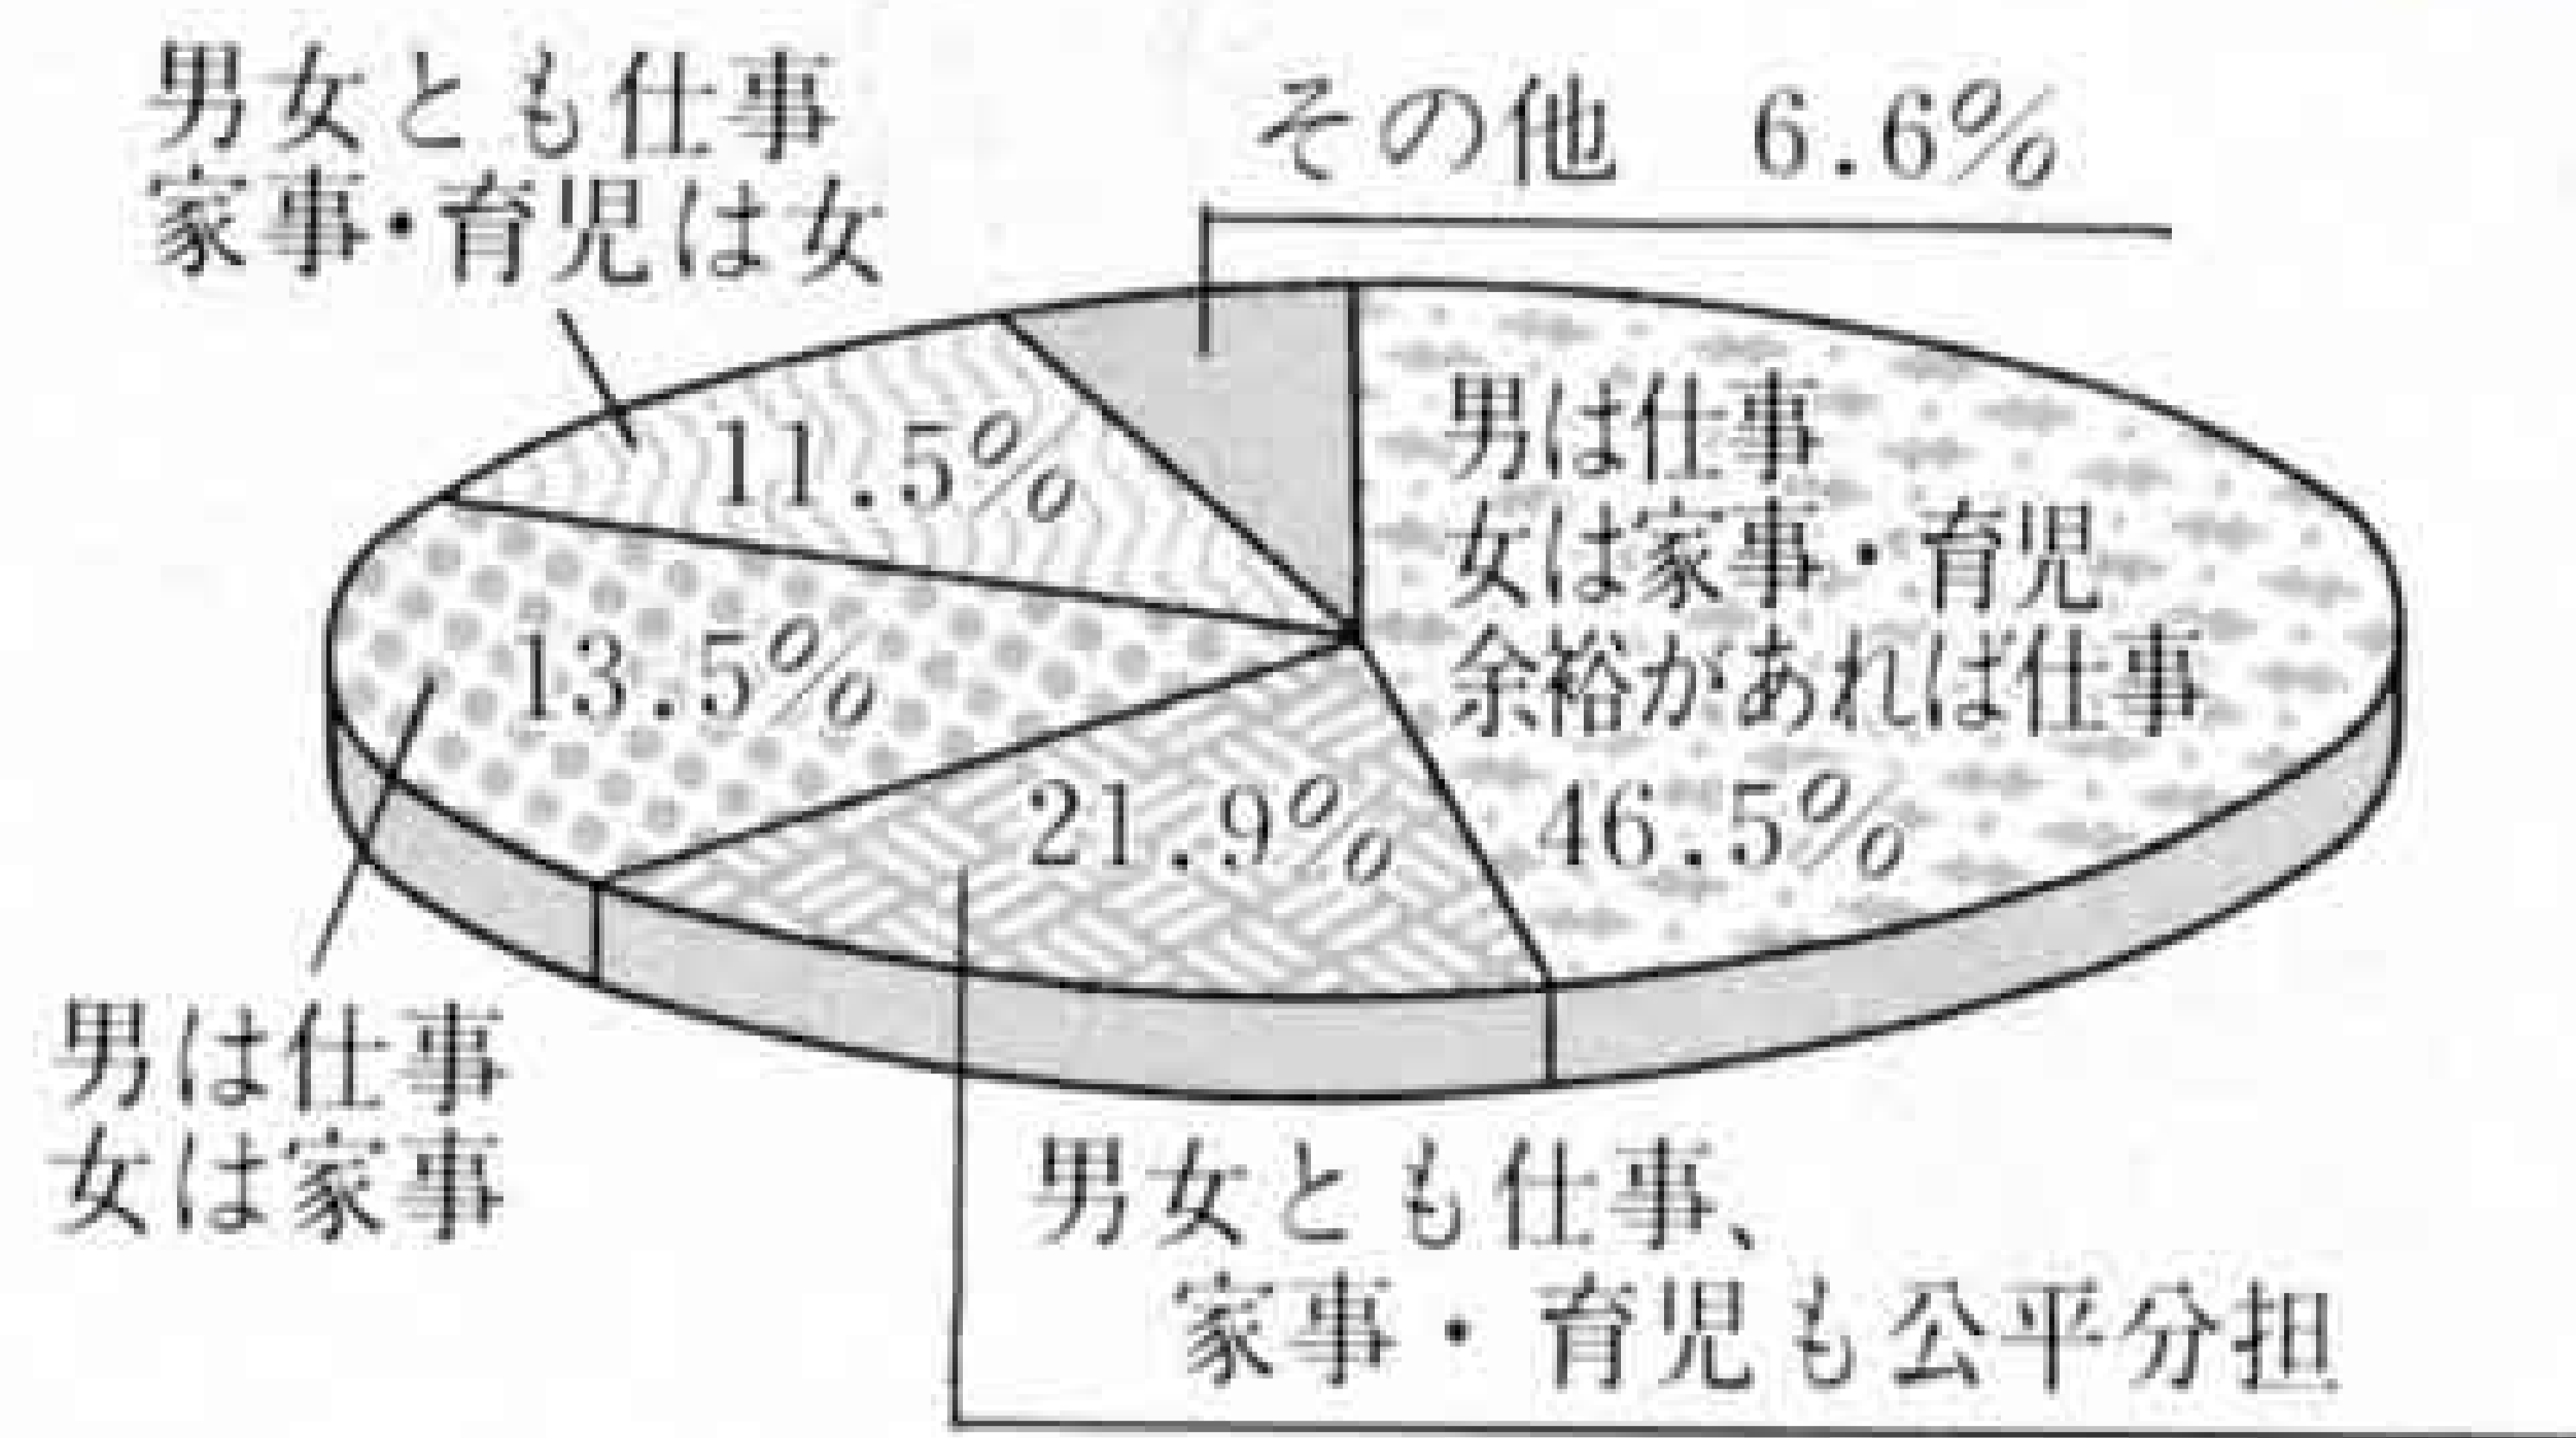 男女とも仕事
家事・育児は女
その他 6.6%
11.5%
男は仕事
女は家事・育児
余裕があれば仕事
46.5%
13.5%
21.9%
男は仕事
女は家事
男女とも仕事、
家事・育児も公平分担